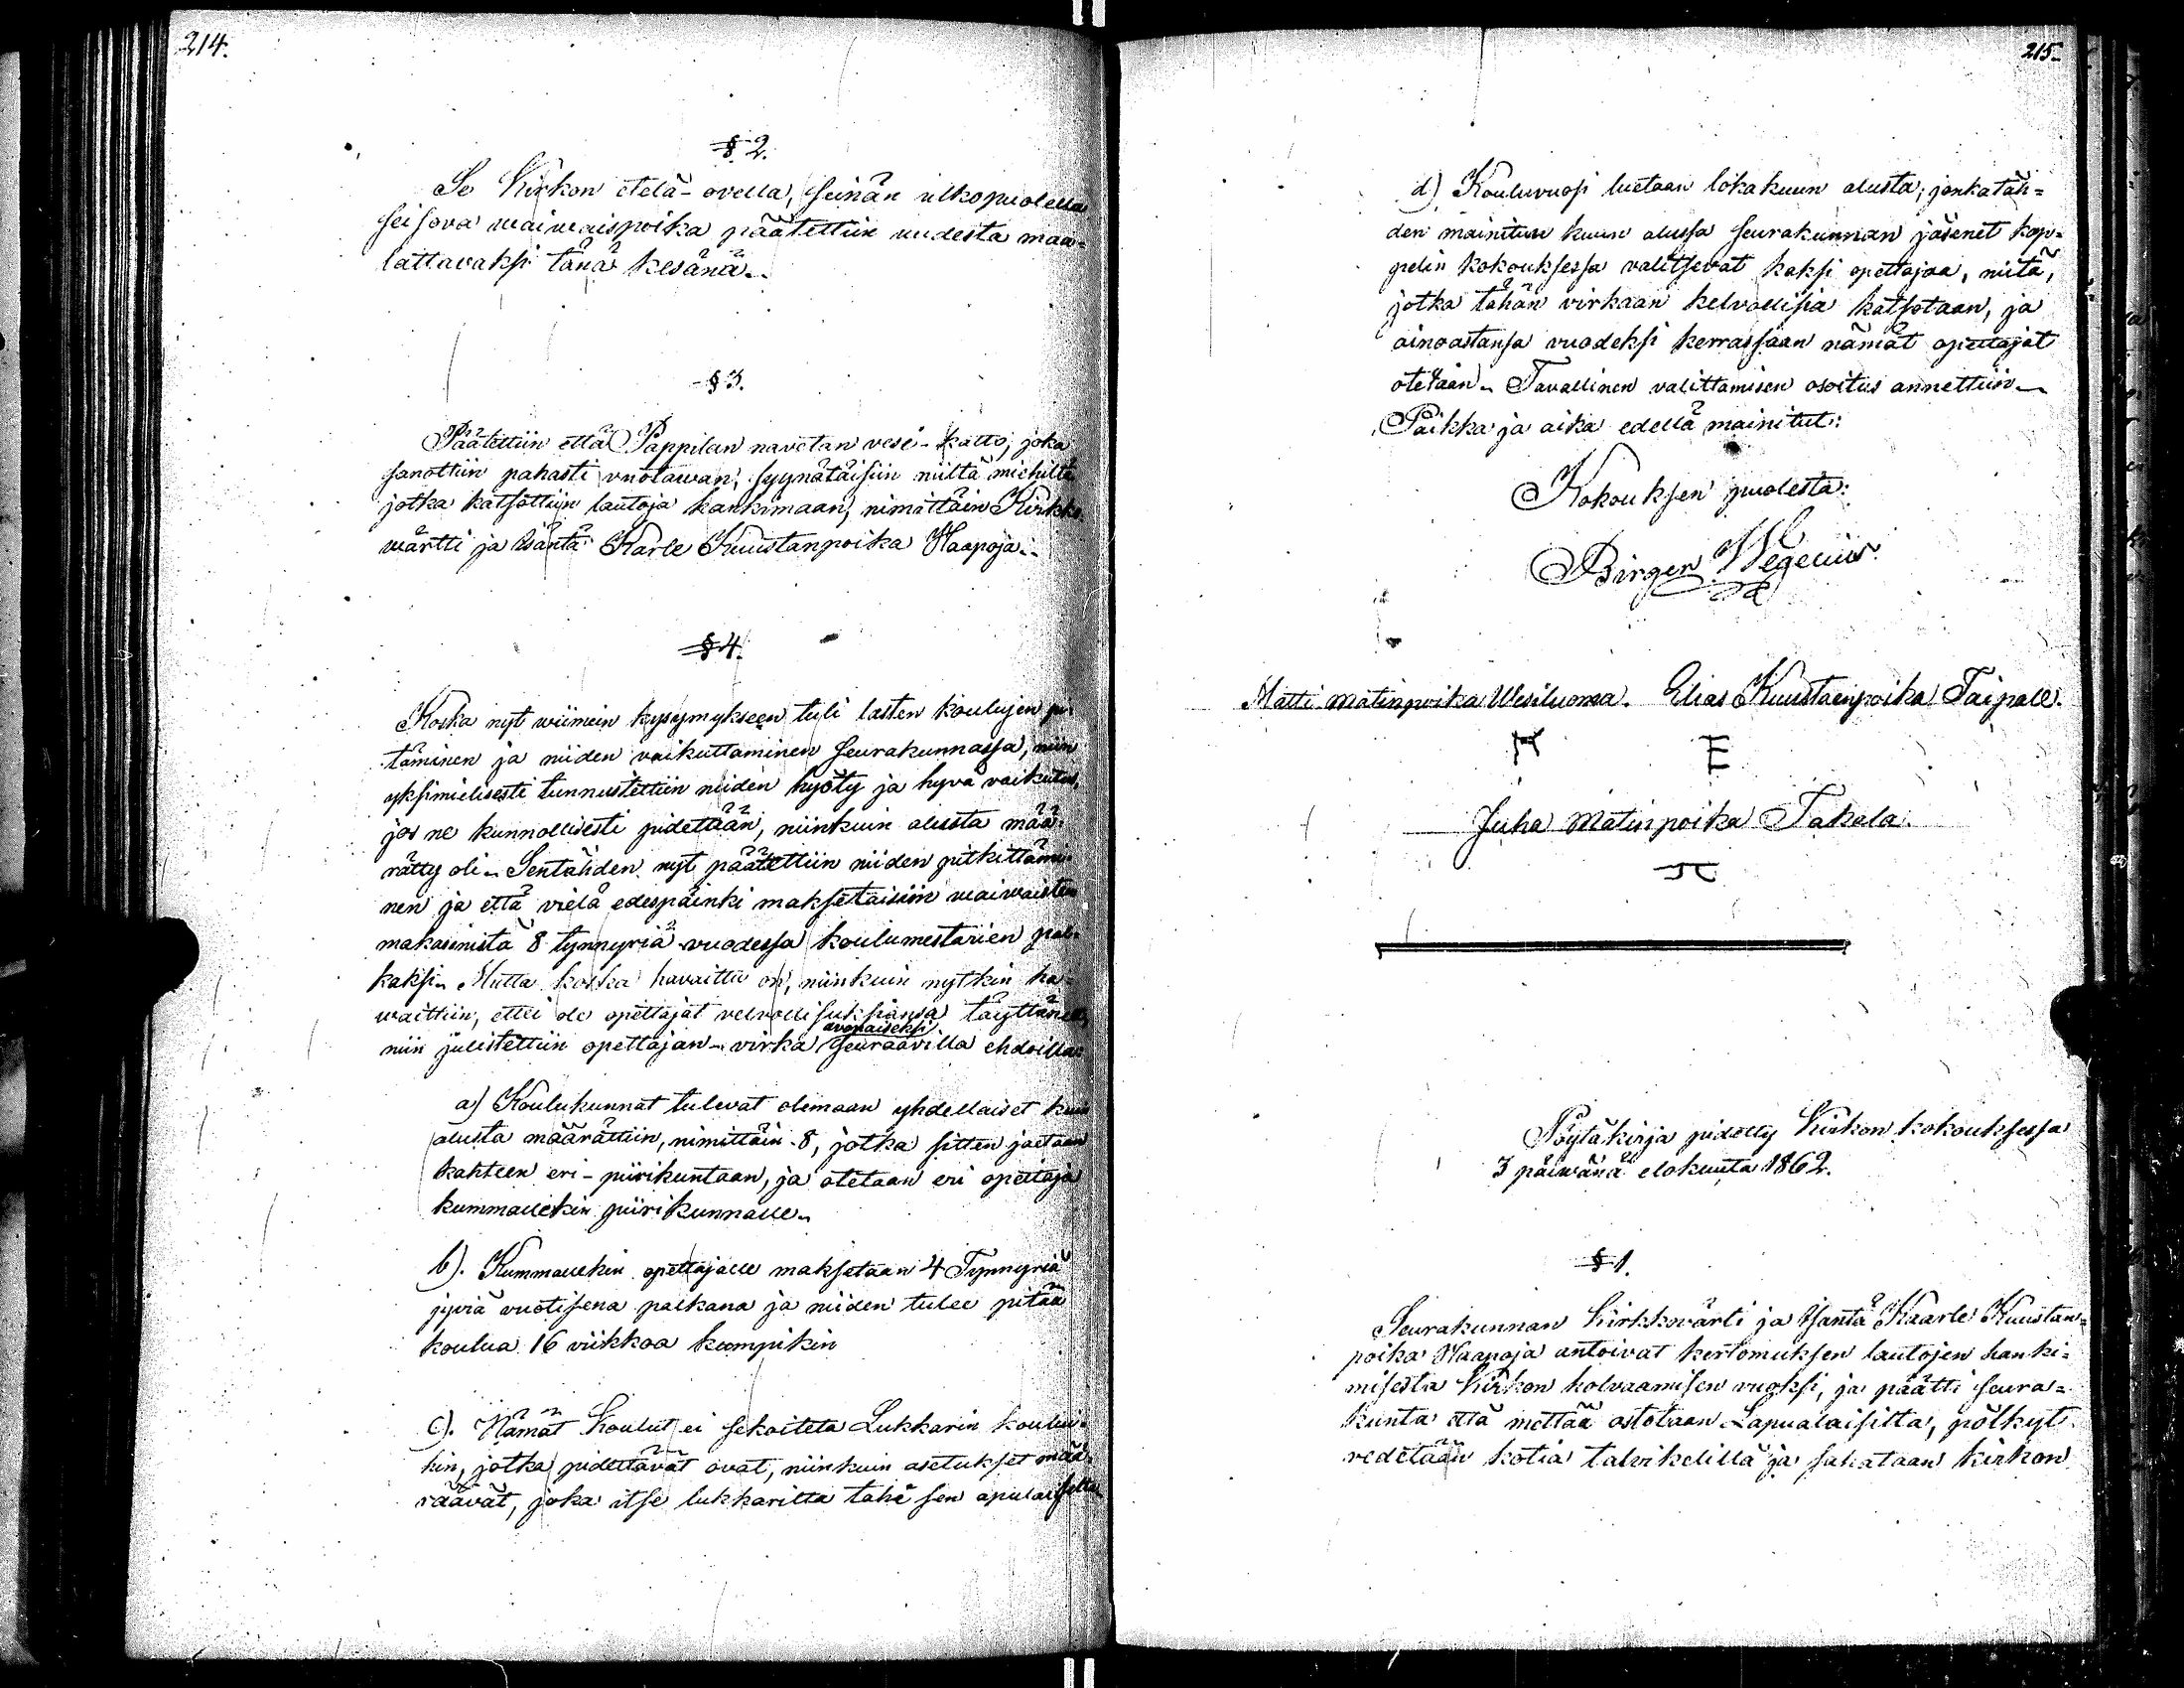 214.
§ 2.
Se Kirkon etelä-ovella, seinän ulkopuolella
seisova waiwaispoika päätettiin uudesta maa-
lattavaksi tänä kesänä.
§ 3.
Päätettiin että Pappilan navetan vesi-katto, joka
sanottiin pahasti vuotawan, syynätäisiin niiltä miehiltä
jotka katsottiin lautoja hankkimaan, nimittäin Kirkko-
wärtti ja isäntä Karle Kuustanpoika Haapoja.
§ 4.
Koska nyt wiimein kysymykseen tuli lasten koulujen pi-
täminen ja niiden vaikuttaminen seurakunnassa, niin
yksimielisesti tunnustettiin niiden hyöty ja hyvä vaikutus,
jos ne kunnollisesti pidetään, niinkuin alusta mää-
rätty oli. Sentähden nyt päätettiin niiden pitkittämi-
nen ja että vielä edespäinki maksetaisiin waiwaisten
makasinista 8 tynnyriä vuodessa koulumestarien pal-
kaksi. Mutta koska havaittu on, niinkuin nytkin ha-
waittiin, ettei ole opettajat velvollisuksiansa täyttäneet,
avonaiseksi
niin julistettiin opettajan-virka seuraavilla ehdoilla:
a) Koulukunnat tulevat olemaan yhdellaiset kuin
alusta määrättiin, nimittäin 8, jotka sitten jaetaan
kahteen eri-piirikuntaan, ja otetaan eri opettaja
kummallekin piirikunnalle.
b). Kummallekin opettajalle maksetaan 4 Tynnyriä
jyviä vuotisena palkana ja niiden tulee pitää
koulua 16 viikkoa kumpikin
c). Nämät Koulut ei sekoiteta Lukkarin koului-
hin, jotka pidettävät ovat, niinkuin asetukset mää-
räävät, joka itse lukkarilta tahi sen apulaiselta
215.
d) Kouluvuosi luetaan lokakuun alusta; jonkatäh-
den mainitun kuun alussa seurakunnan jäsenet kap-
pelin kokouksessa valitsevat kaksi opettajaa, niitä,
jotka tähän virkaan kelvollisia katsotaan, ja
ainoastansa vuodeksi kerrassaan nämät opettajat
otetaan. Tavallinen valittamisen osoitus annettiin.
Paikka ja aika edellä mainitut:
Kokouksen puolesta:
Birger Wegelius.
Matti Matinpoika Wesiluoma. Elias Kuustaanpoika Taipale.
M E
Juha Matinpoika Takala.
Pöytäkirja pidetty Kirkon kokouksessa
3 päiwänä elokuuta 1862.
§ 1.
Seurakunnan Kirkkwärti ja Isäntä Kaarle Kuustan-
poika Haapoja antoivat kertomuksen lautojen hanki-
misesta Kirkon holvaamisen vuoksi, ja päätti seura-
kunta että mettää ostetaan Lapualaisilta, pölkyt
vedetään kotia talvikelillä ja sahataan kirkon